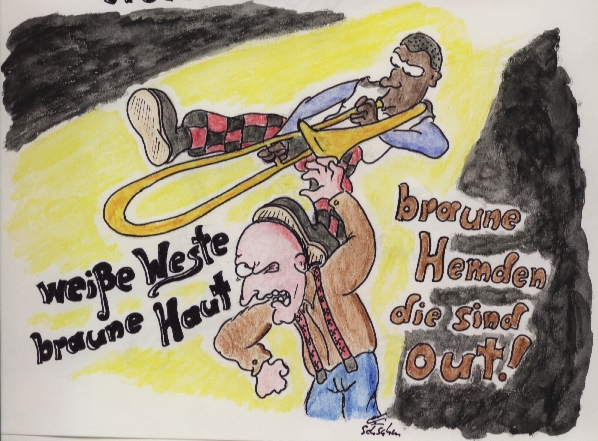 weiße Weste
braune Haut
braune
Hemden
die sind
out!